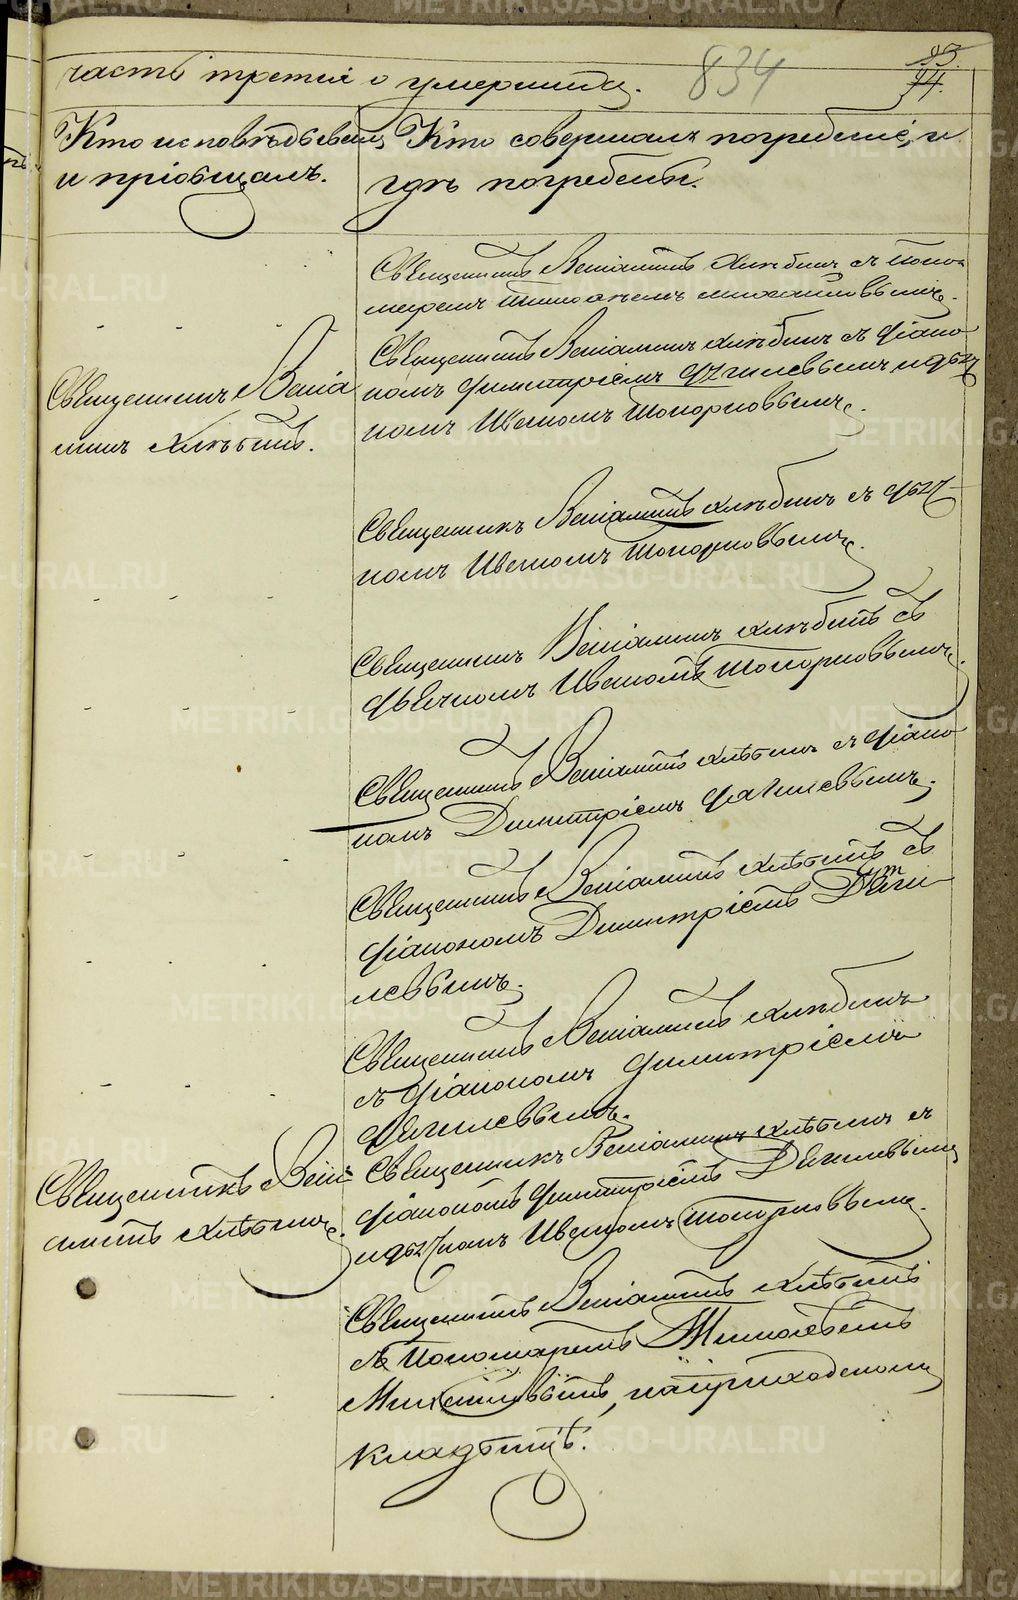 часть третія о умершихъ.
834
Кто исповѣдывалъ и пріобщалъ.
Кто совершалъ погребеніе, и
гдѣ погребены.
Священникъ Веніаминъ Хлѣбинъ съ поно-
маремъ Тимофеемъ Михайловымъ.
Священникъ Веніаминъ Хлѣбинъ съ діако-
номъ Димитріемъ Дягилевымъ и дьяч-
комъ Иваномъ Топорковымъ.
Священникъ Веніа-
минъ Хлѣбинъ.
Священникъ Веніаминъ Хлѣбинъ съ дьяч-
комъ Иваномъ Топорковымъ.
Священникъ Веніаминъ Хлѣбинъ съ
дьячкомъ Иваномъ Топорковымъ.
Священникъ Веніаминъ Хлѣбинъ съ діако-
номъ Димитріемъ Дягилевымъ.
Священникъ Веніаминъ Хлѣбинъ съ
діакономъ Димитріемъ Дяги-
левымъ.
Священникъ Веніаминъ Хлѣбинъ
съ діакономъ Димитріемъ
Дягилевымъ.
Священникъ Вені-
аминъ Хлѣбинъ.
Священникъ Веніаминъ Хлѣбинъ съ
діакономъ Димитріемъ Дягилевымъ
и дьячкомъ Иваномъ Топорковымъ.
Священникъ Веніаминъ Хлѣбинъ
съ Пономаремъ Тимофеемъ
Михайловымъ, на приходскомъ
кладбищѣ.
METRIKI.GASO-URAL.RU